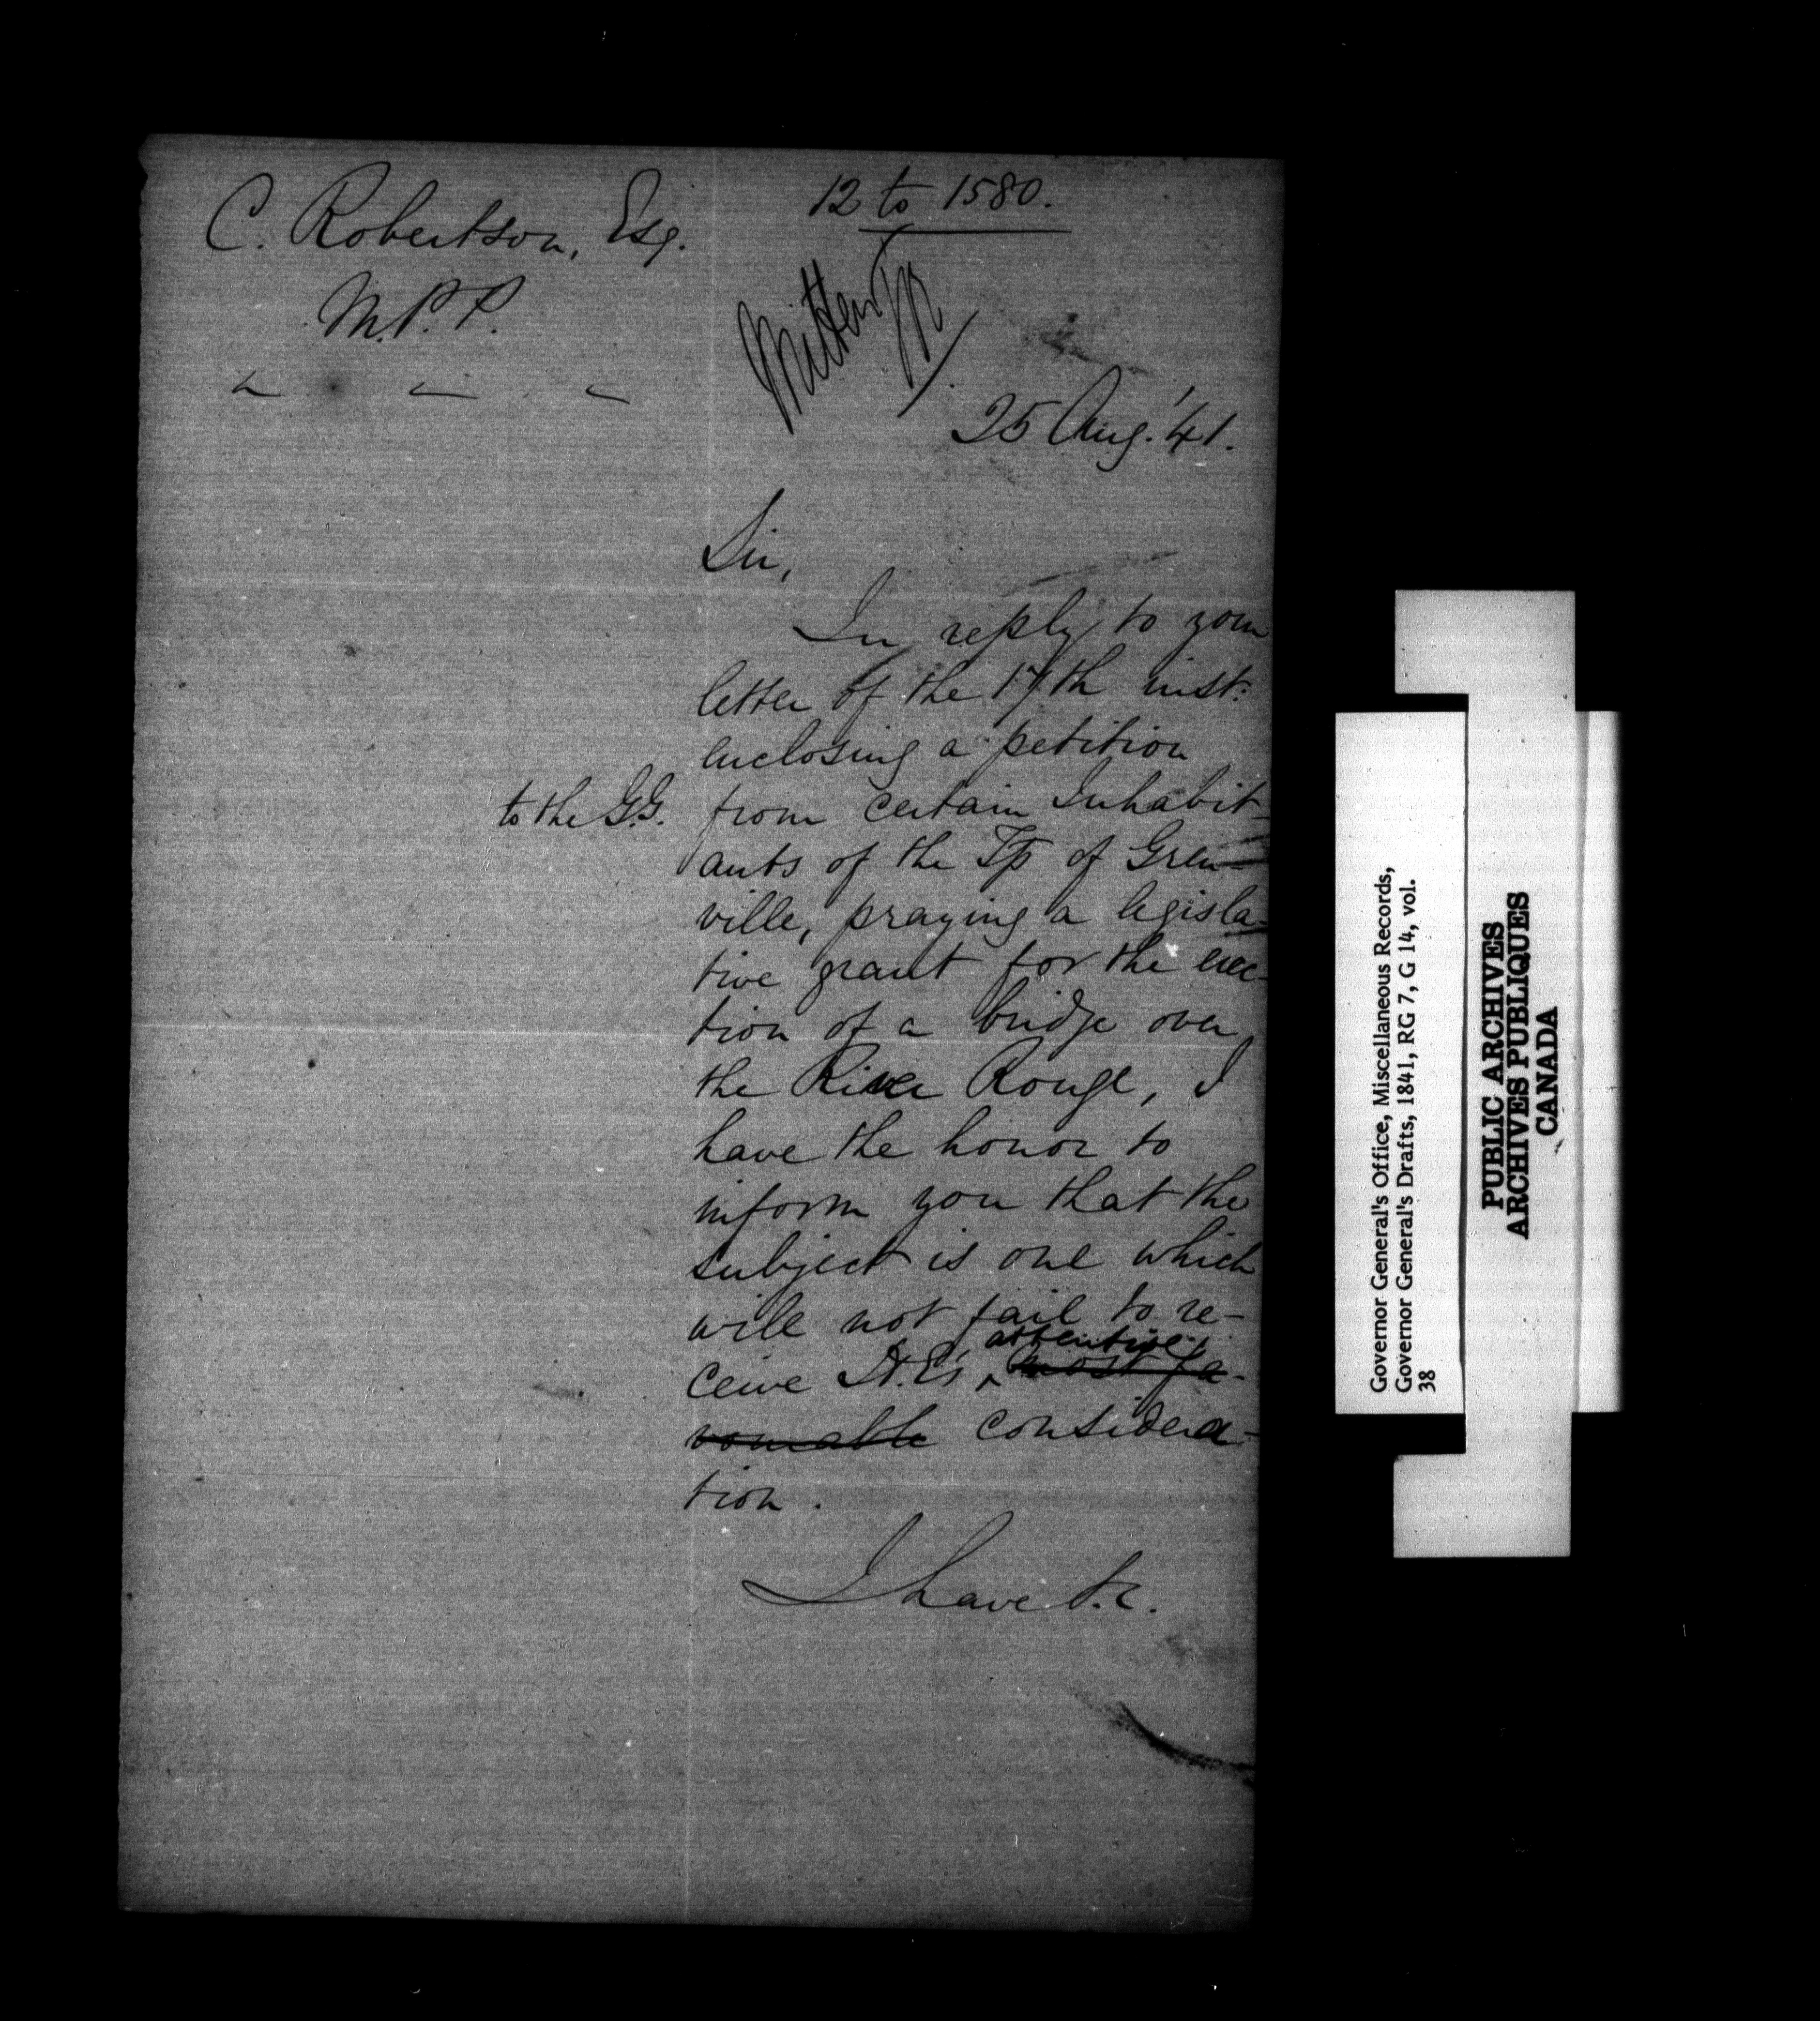 C. Robertson, Esq.
M.P.P.
12 to 1580.
Written
25 Aug. '41.
Sir,
In reply to your
letter of the 17th inst:
enclosing a petition
to the G.G.
from certain Inhabit-
ants of the Tp of Gren-
ville, praying a legisla-
tive grant for the erec-
tion of a bridge over
the River Rouge, I
have the honor to
inform you that the
subject is one which
will not fail to re-
attentive
ceive H.E's ^ most fa-
vourable considera-
tion.
I have &c.
Governor General's Office, Miscellaneous Records,
Governor General's Drafts, 1841, RG 7, G 14, vol.
38
PUBLIC ARCHIVES
ARCHIVES PUBLIQUES
CANADA